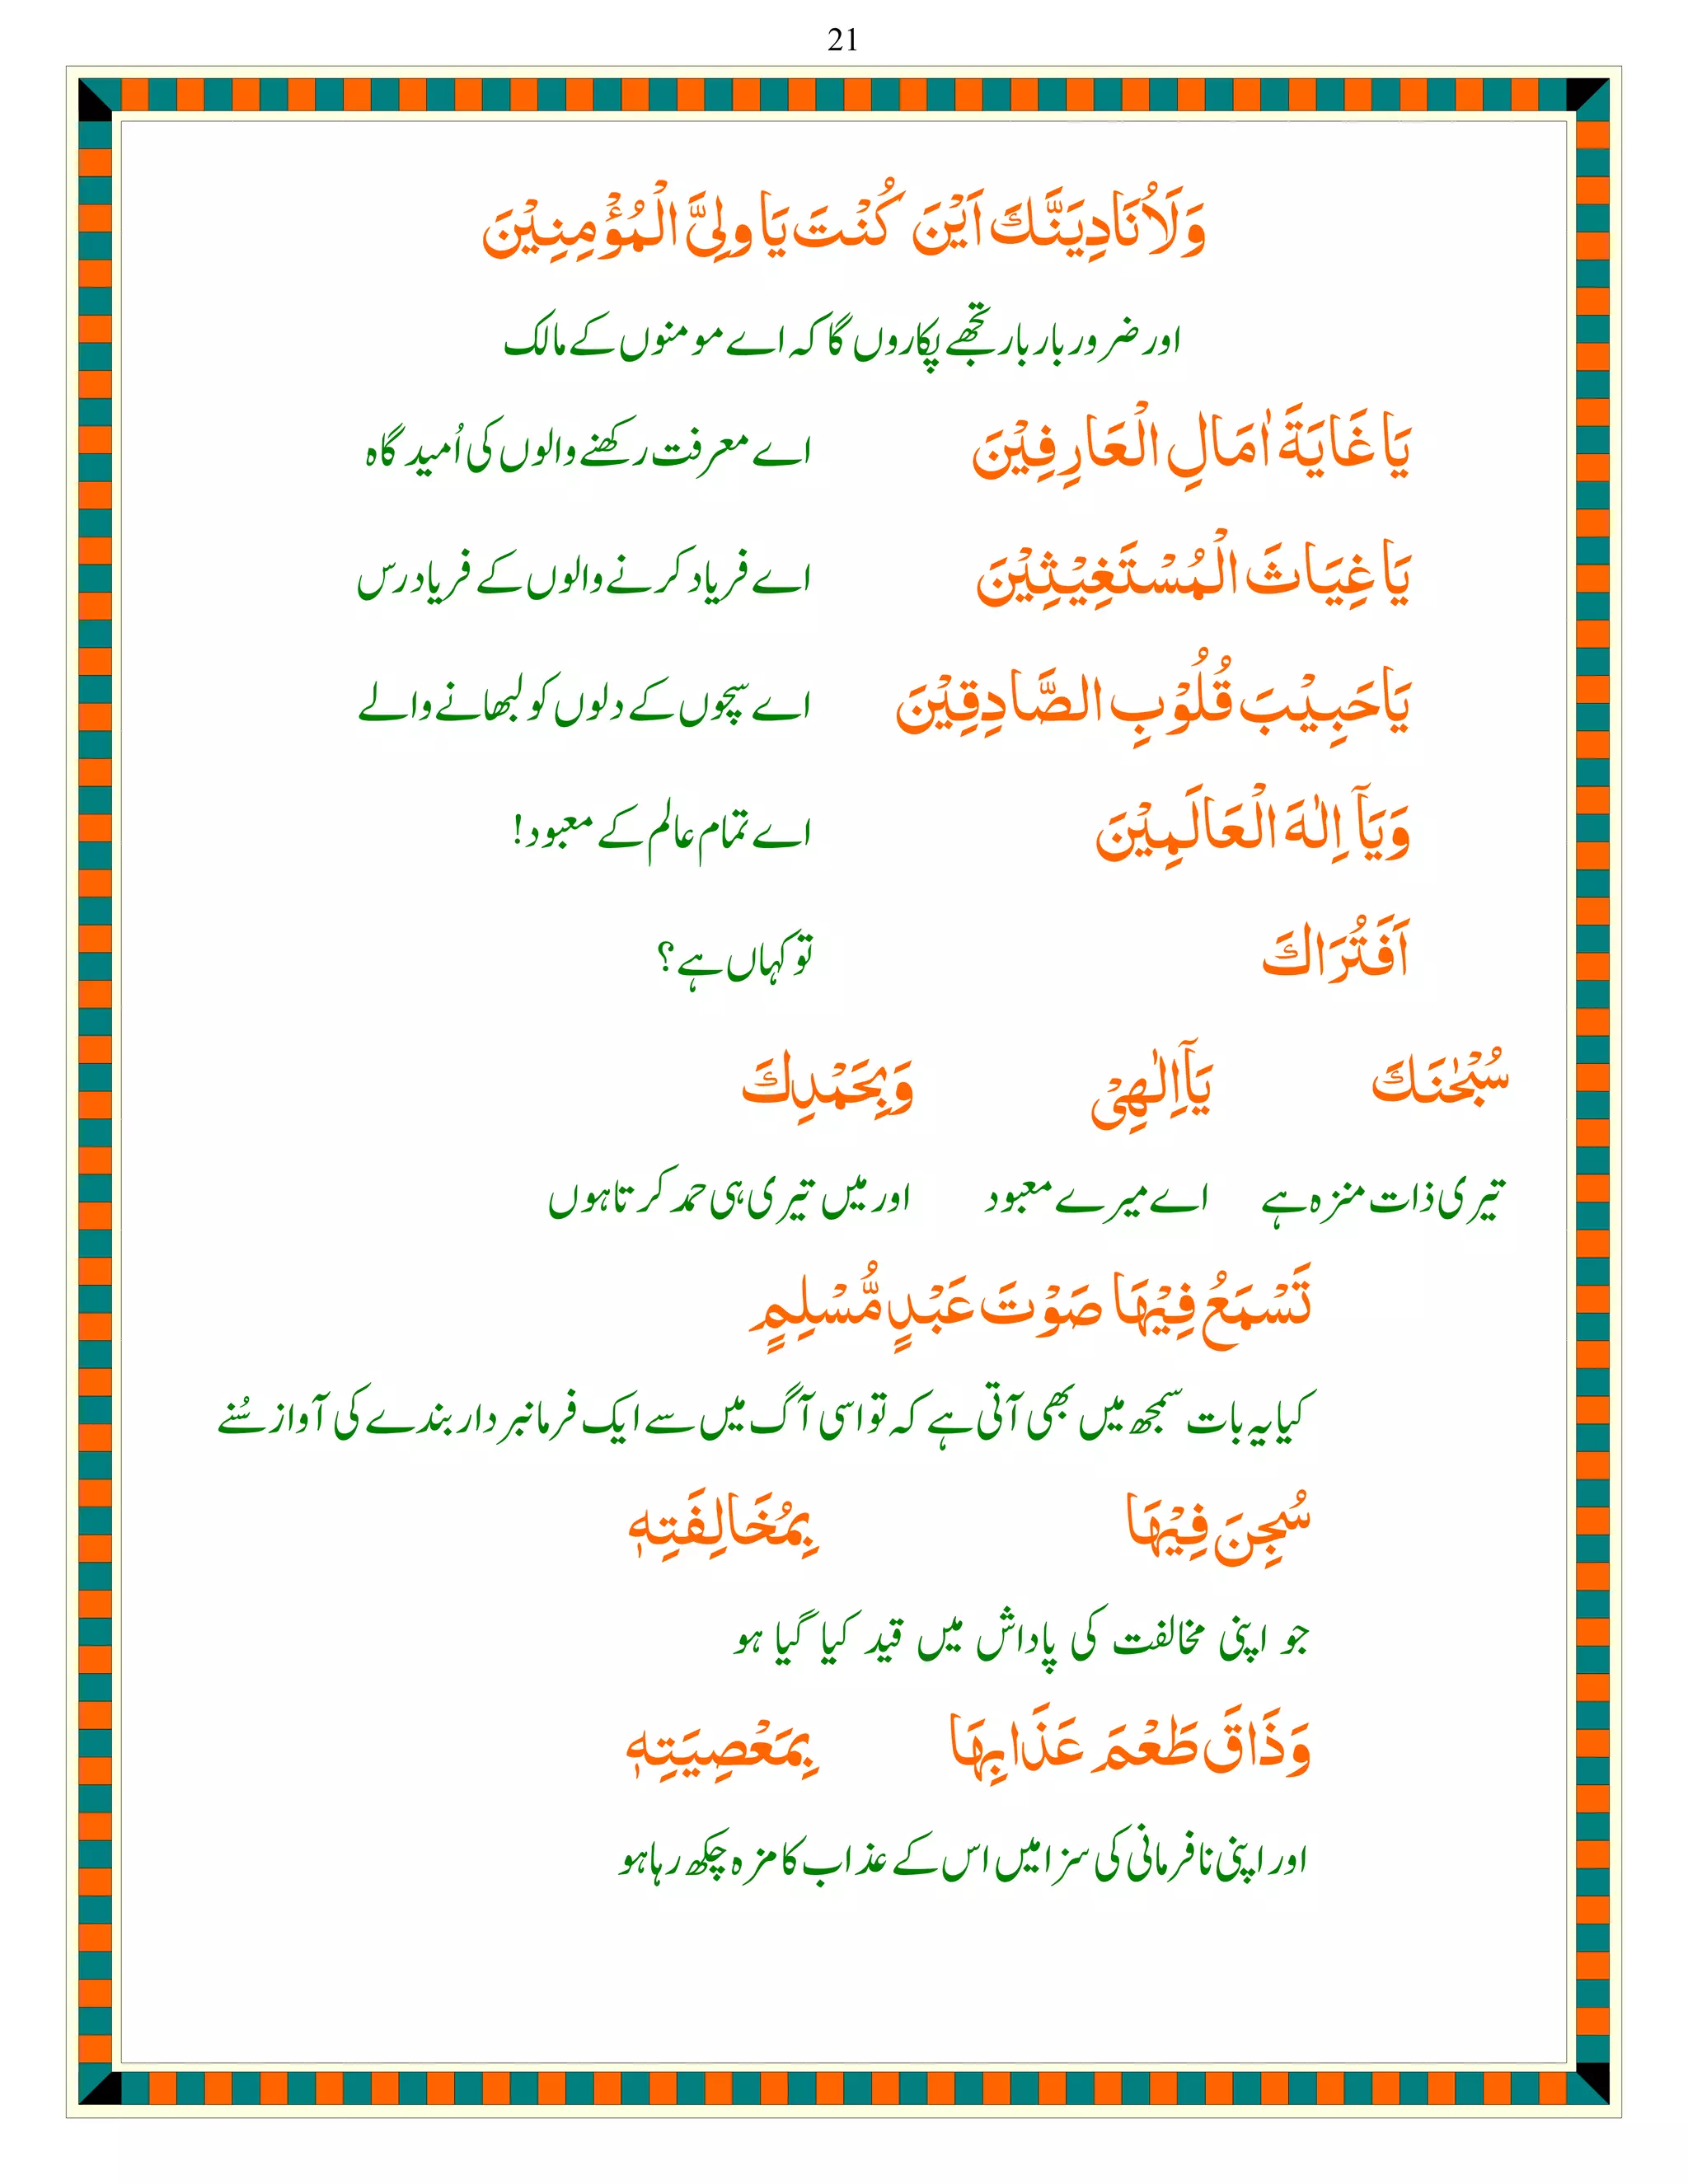 21
وَلَاُنَادِيَنَّكَ اَيْنَ كُنْتَ يَا وَلِىَّ الْمُؤْمِنِيْنَ
اور ضرور بار بار تجھے پکاروں گا کہ اے مومنوں کے مالک
يَا غَايَةَ اٰمَالِ الْعَارِفِيْنَ اے معرفت رکھنے والوں کی اُمید گاہ
يَا غِيَاثَ الْمُسْتَغِيْثِيْنَ اے فریاد کرنے والوں کے فریاد رس
يَا حَبِيْبَ قُلُوْبِ الصَّادِقِيْنَ اے سچّوں کے دلوں کو لبھانے والے
وَيَآ اِلٰهَ الْعَالَمِيْنَ اے تمام عالم کے معبود!
اَفَتُرَاكَ تو کہاں ہے؟
سُبْحٰنَكَ يَآ اِلٰهِىْ وَبِحَمْدِكَ
تیری ذات منزہ ہے اے میرے معبود اور میں تیری ہی حمد کرتا ہوں
تَسْمَعُ فِيْهَا صَوْتَ عَبْدٍ مُّسْلِمٍ
کیا یہ بات سمجھ میں بھی آتی ہے کہ تو اسی آگ میں سے ایک فرمانبردار بندے کی آواز سُنے
سُجِنَ فِيْهَا بِمُخَالِفَتِهٖ
جو اپنی مخالفت کی پاداش میں قید کیا گیا ہو
وَذَاقَ طَعْمَ عَذَابِهَا بِمَعْصِيَتِهٖ
اور اپنی نافرمانی کی سزا میں اس کے عذاب کا مزہ چکھ رہا ہو